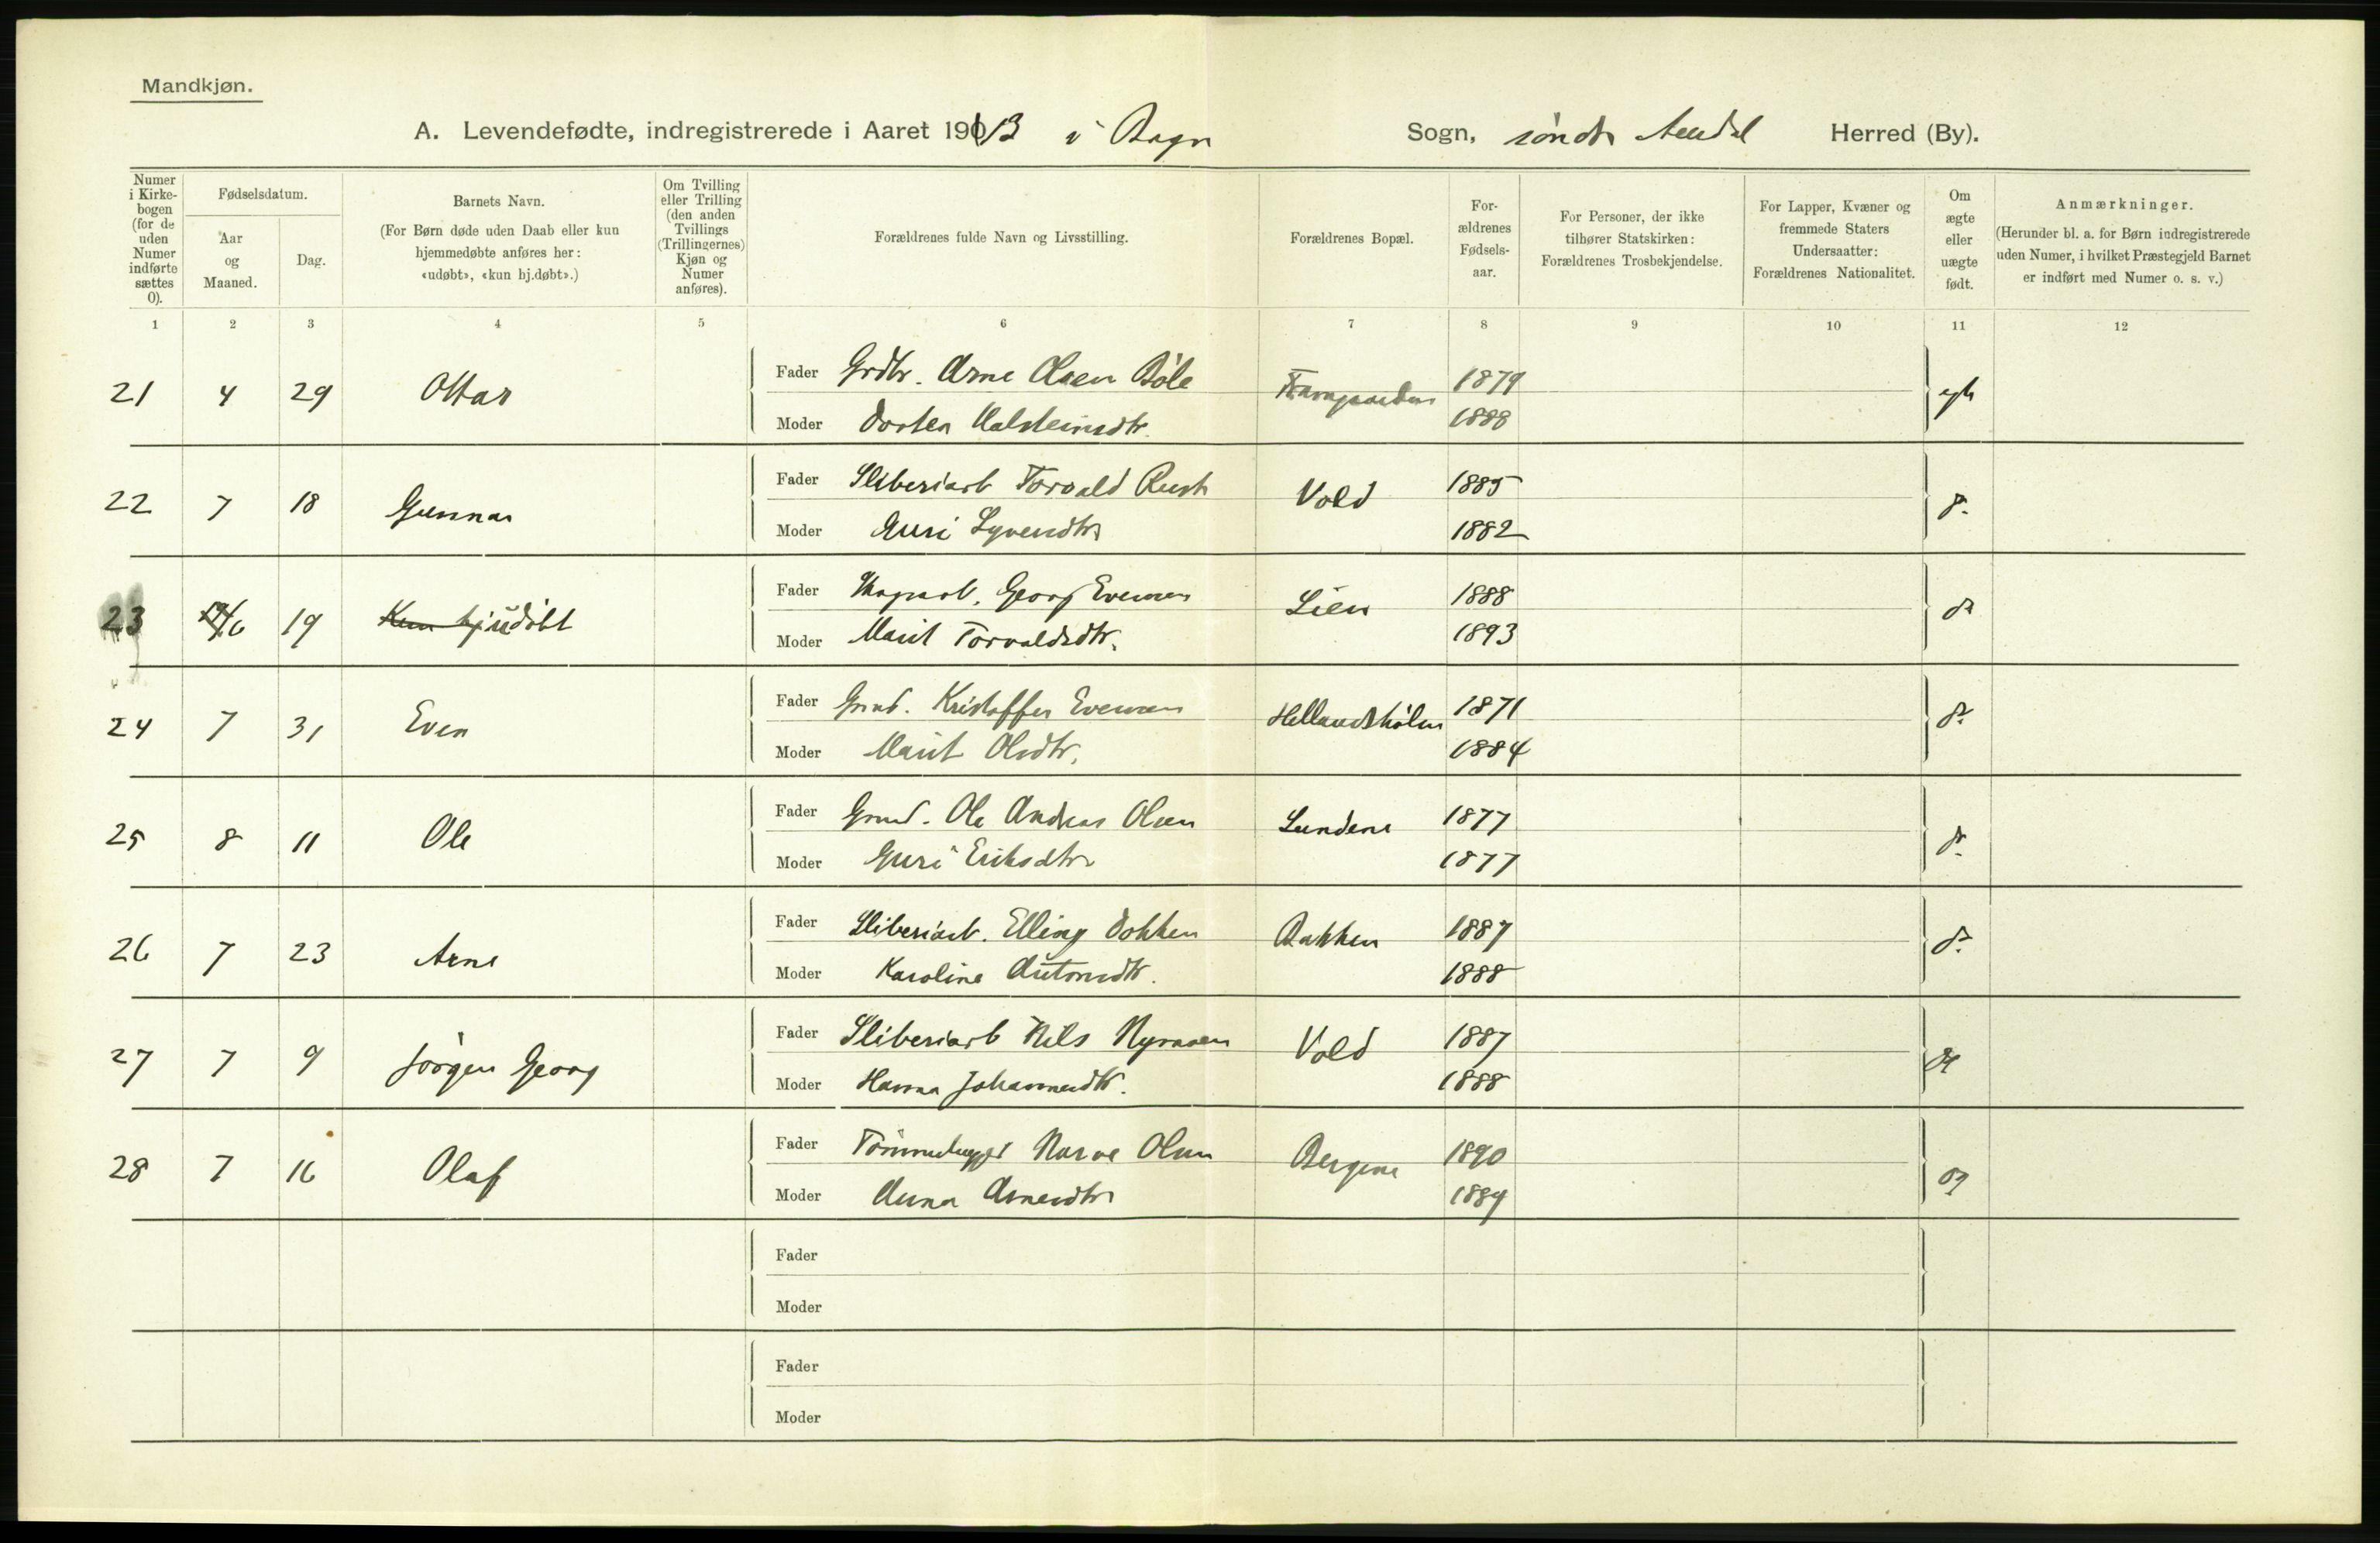 Mandkjøn.
A. Levendefødte, indregistrerede i Aaret 1913 i Bagn Sogn, söndr Aurdal Herred (By).
Numer i Kirkebogen (for de uden Numer indførte sættes 0).
Fødselsdatum.
Aar og Maaned.
Dag.
Barnets Navn.
(For Børn døde uden Daab eller kun hjemmedøbte anføres her: «udøbt», «kun hj.døbt».)
Om Tvilling eller Trilling (den anden Tvillings (Trillingernes) Kjøn og Numer anføres).
Forældrenes fulde Navn og Livsstilling.
Forældrenes Bopæl.
Forældrenes Fødselsaar.
For Personer, der ikke tilhører Statskirken: Forældrenes Trosbekjendelse.
For Lapper, Kvæner og fremmede Staters Undersaatter: Forældrenes Nationalitet.
Om ægte eller uægte født.
Anmærkninger.
(Herunder bl. a. for Børn indregistrerede uden Numer, i hvilket Præstegjeld Barnet er indført med Numer o. s. v.)
1 2 3 4 5 6 7 8 9 10 11 12
21 4 29 Ottar Fader Grdbr. Arne Olsen Böle 1879
Moder Dorthea Halsteinsdtr. 1888
22 7 18 Gunnar Fader Sliberiarb Torvald Rust Vold 1885
Moder Guri Syversdtr 1882
23 6 19 Kun hj udöbt Fader Georg Evensen Lien 1888
Moder Marit Torvaldsdtr. 1893
24 7 31 Even Fader Kristoffer Evensen 1871
Moder Marit Olsdtr. 1884
25 8 11 Ole Fader Ole Andreas Olsen Lundene 1877
Moder Guri Eriksdtr 1877
26 7 23 Arne Fader Sliberiarb. Elling Dokken Bakken 1887
Moder Karoline Antonsdtr. 1888
27 7 9 Jörgen Georg Fader Sliberiarb Nils Nyraaen Vold 1887
Moder Hanna Johannesdtr. 1888
28 7 16 Olaf Fader Tömmerhugger Narve Olsen Bergene 1890
Moder Anna Arnesdtr 1889
Fader
Moder
Fader
Moder